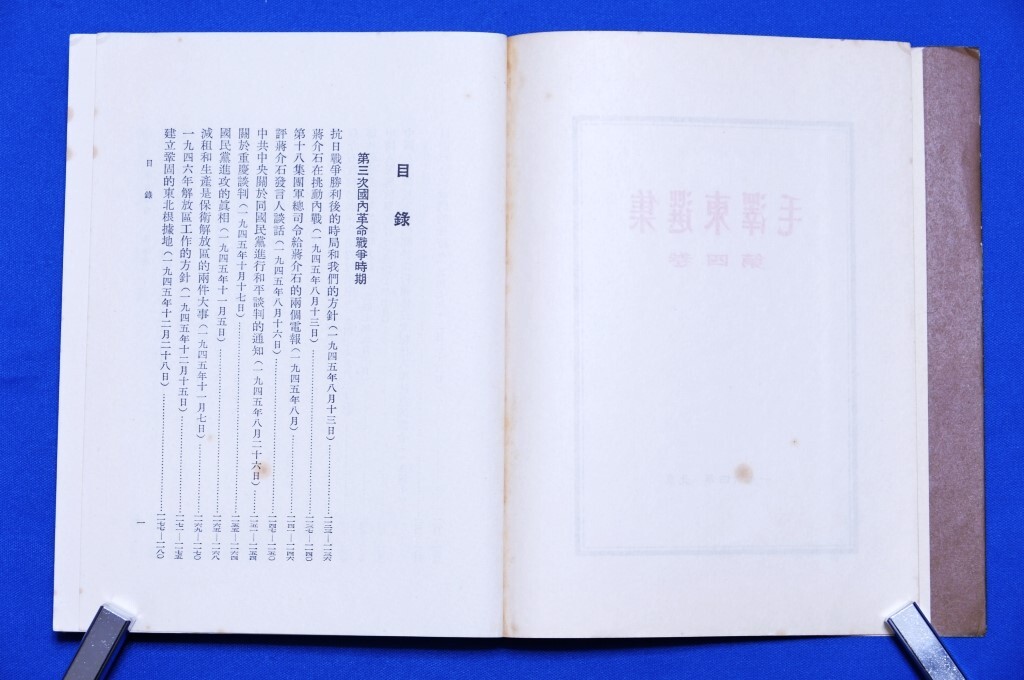 毛澤東選集
第四卷
目錄
第三次國內革命戰爭時期
抗日戰爭勝利後的時局和我們的方針(一九四五年八月十三日)……一一二三—一一三六
蔣介石在挑動內戰(一九四五年八月十三日)……一一三七—一一四〇
第十八集團軍總司令給蔣介石的兩個電報(一九四五年八月)……一一四一—一一四六
評蔣介石發言人談話(一九四五年八月十六日)……一一四七—一一五〇
中共中央關於同國民黨進行和平談判的通知(一九四五年八月二十六日)……一一五一—一一五四
關於重慶談判(一九四五年十月十七日)……一一五五—一一六四
國民黨進攻的眞相(一九四五年十一月五日)……一一六五—一一六八
減租和生產是保衛解放區的兩件大事(一九四五年十一月七日)……一一六九—一一七〇
一九四六年解放區工作的方針(一九四五年十二月十五日)……一一七一—一一七五
建立鞏固的東北根據地(一九四五年十二月二十八日)……一一七七—一一八〇
目錄
一